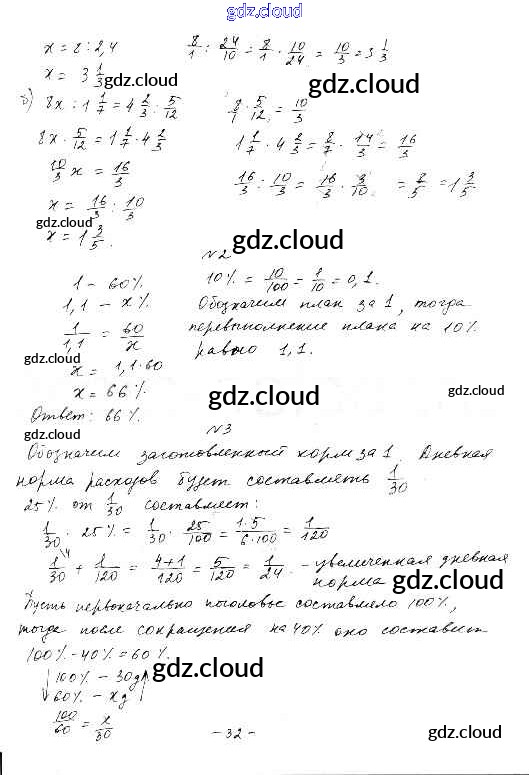 gdz.cloud
x = 8 : 2,4   8/1 : 24/10 = 8/1 · 10/24 = 10/3 = 3 1/3
x = 3 1/3
gdz.cloud
б) 8x : 1 1/7 = 4 2/3 · 5/12   8/1 · 5/12 = 10/3
8x · 5/12 = 1 1/7 · 4 2/3   1 1/7 · 4 2/3 = 8/7 · 14/3 = 16/3
10/3 x = 16/3   16/3 : 10/3 = 16/3 · 3/10 = 8/5 = 1 3/5
x = 16/3 : 10/3
gdz.cloud
x = 1 3/5.
gdz.cloud
№2
1 – 60%   10% = 10/100 = 1/10 = 0,1.
1,1 – x%   Обозначим план за 1, тогда
1/1,1 = 60/x   перевыполнение плана на 10%
gdz.cloud
x = 1,1·60   равно 1,1.
x = 66%
gdz.cloud
gdz.cloud
Ответ: 66%
№3
Обозначим заготовленный корм за 1. Дневная
норма расходов будет составлять 1/30
25% от 1/30 составляет:
gdz.cloud
1/30 · 25% = 1/30 · 25/100 = 1·5/6·100 = 1/120
1/30 + 1/120 = 4+1/120 = 5/120 = 1/24. – увеличенная дневная
норма
gdz.cloud
Пусть первоначально поголовье составляло 100%,
тогда после сокращения на 40% оно составит
100% – 40% = 60%.
gdz.cloud
↓100% – 30д↑
↓60% – xд↑
100/60 = x/30
– 32 –
gdz.cloud